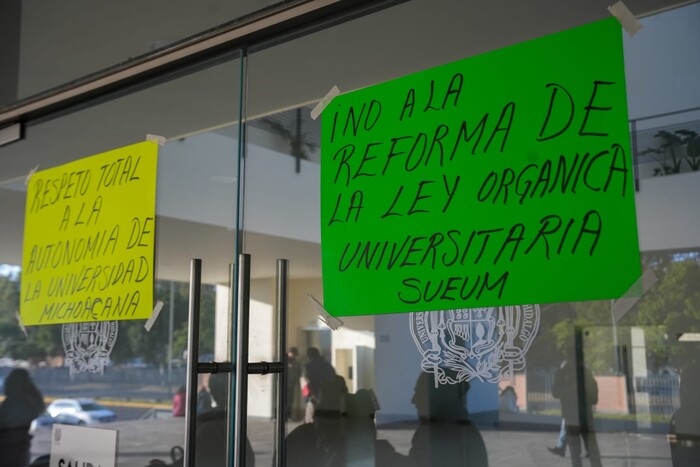 RESPETO TOTAL
A LA
AUTONOMIA DE
LA UNIVERSIDAD
MICHOACANA
¡NO A LA
REFORMA DE
LA LEY ORGANICA
UNIVERSITARIA
SUEUM